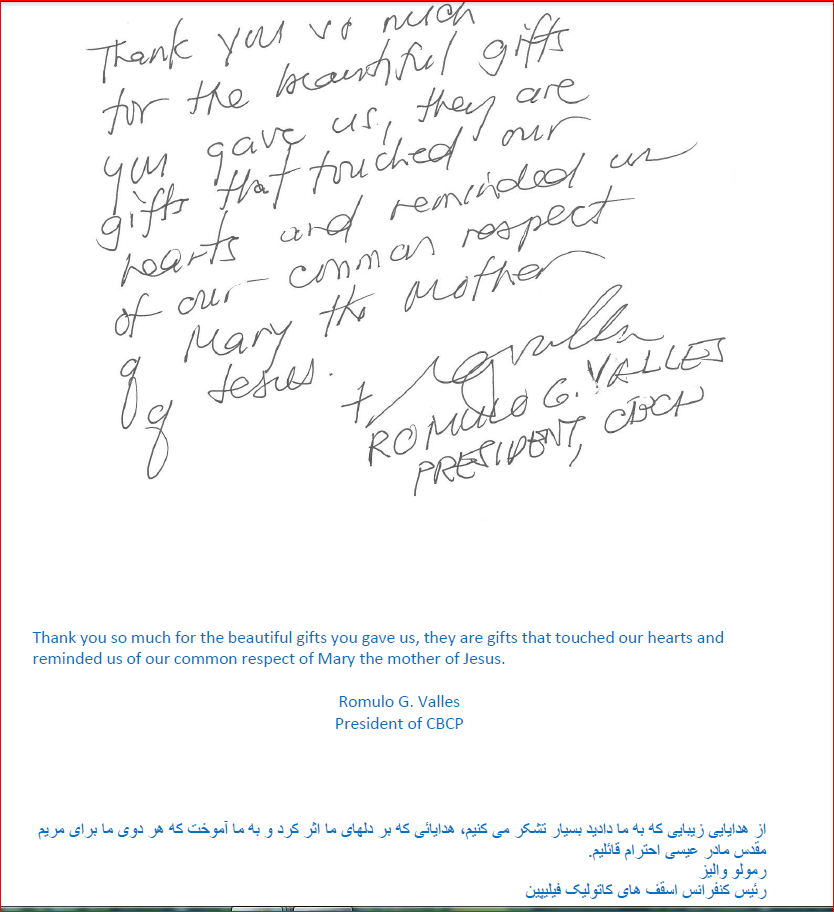 Thank you so much
for the beautiful gifts
you gave us, they are
gifts that touched our
hearts and reminded us
of our common respect
of Mary the mother
of Jesus.
+ Rgvalles
ROMULO G. VALLES
PRESIDENT, CBCP
Thank you so much for the beautiful gifts you gave us, they are gifts that touched our hearts and
reminded us of our common respect of Mary the mother of Jesus.
Romulo G. Valles
President of CBCP
از هدایایی زیبایی که به ما دادید بسیار تشکر می کنیم، هدایائی که بر دلهای ما اثر کرد و به ما آموخت که هر دوی ما برای مریم
مقدس مادر عیسی احترام قائلیم.
رمولو والیز
رئیس کنفرانس اسقف های کاتولیک فیلیپین